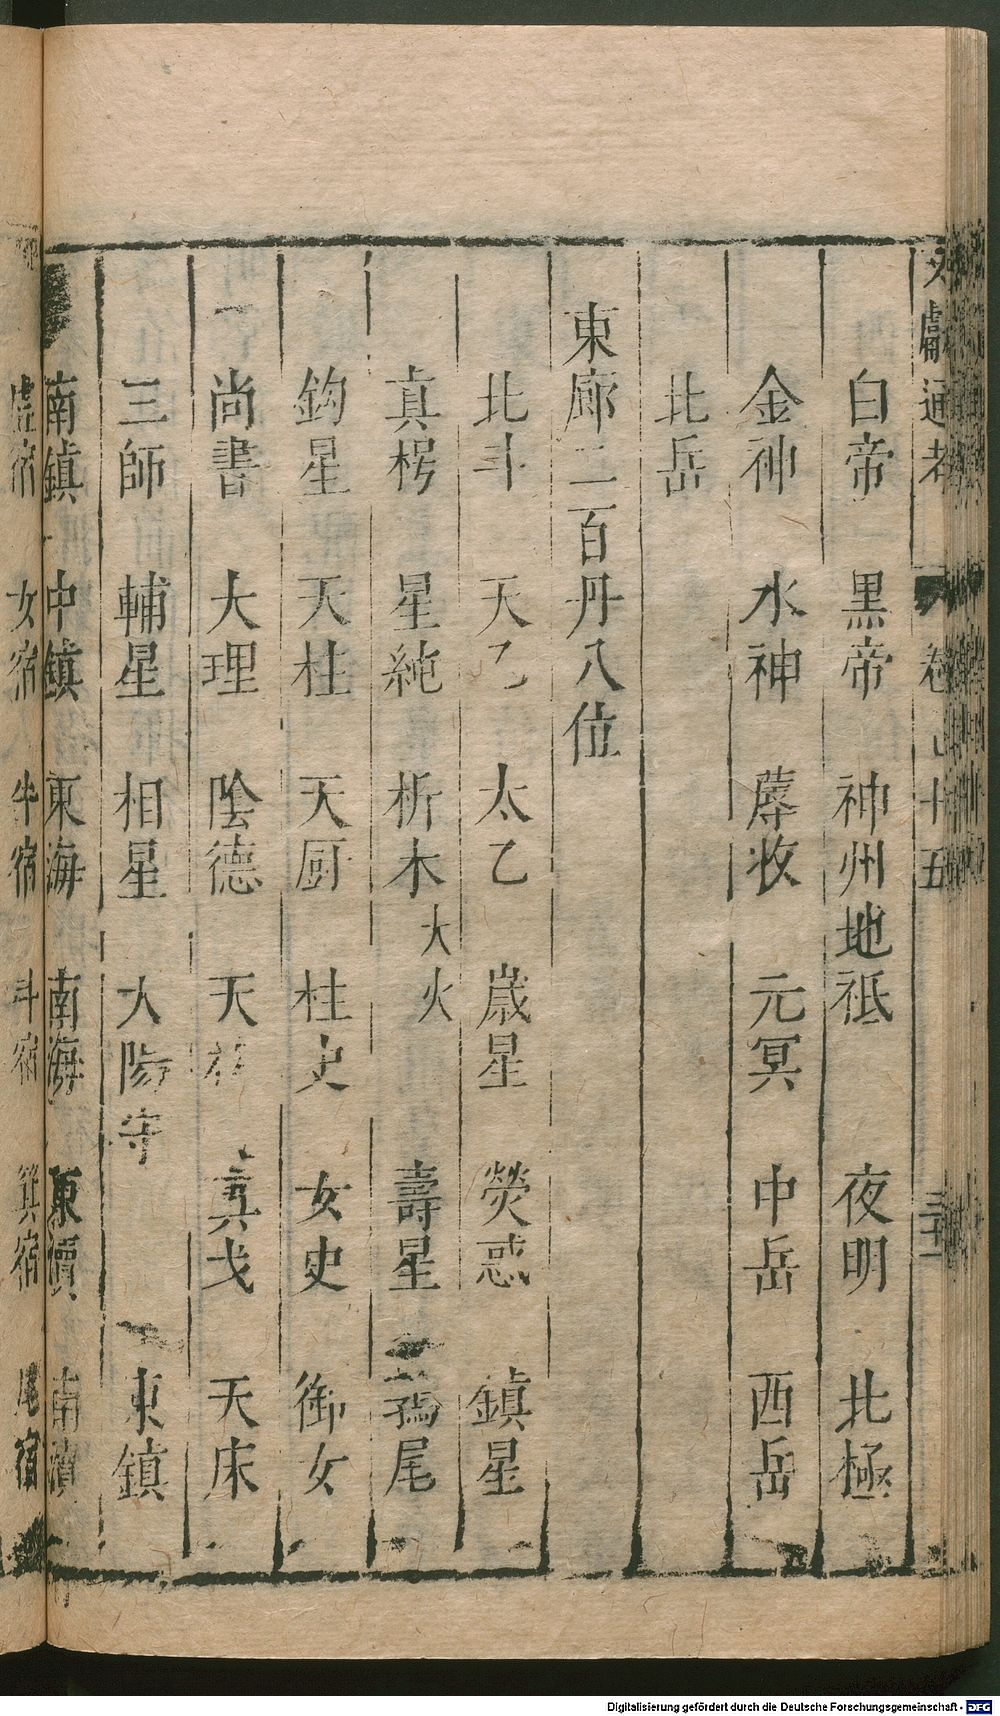 文獻通考 卷 十五
白帝 黒帝 神州地祗 夜明 北極
金神 水神 蓐收 元冥 中岳 西岳
北岳
東廊二百丹八位
北斗 天乙 太乙 歲星 熒惑 鎮星
真枵 星純 析木 大火 壽星 鶉尾
鈎星 天柱 天厨 柱史 女史 御女
尚書 大理 陰德 天 真戈 天床
三師 輔星 相星 太陽守 東鎮
南鎮 中鎮 東海 南海 東瀆 南瀆
虛宿 女宿 牛宿 斗宿 箕宿 尾宿
Digitalisierung gefördert durch die Deutsche Forschungsgemeinschaft - DFG